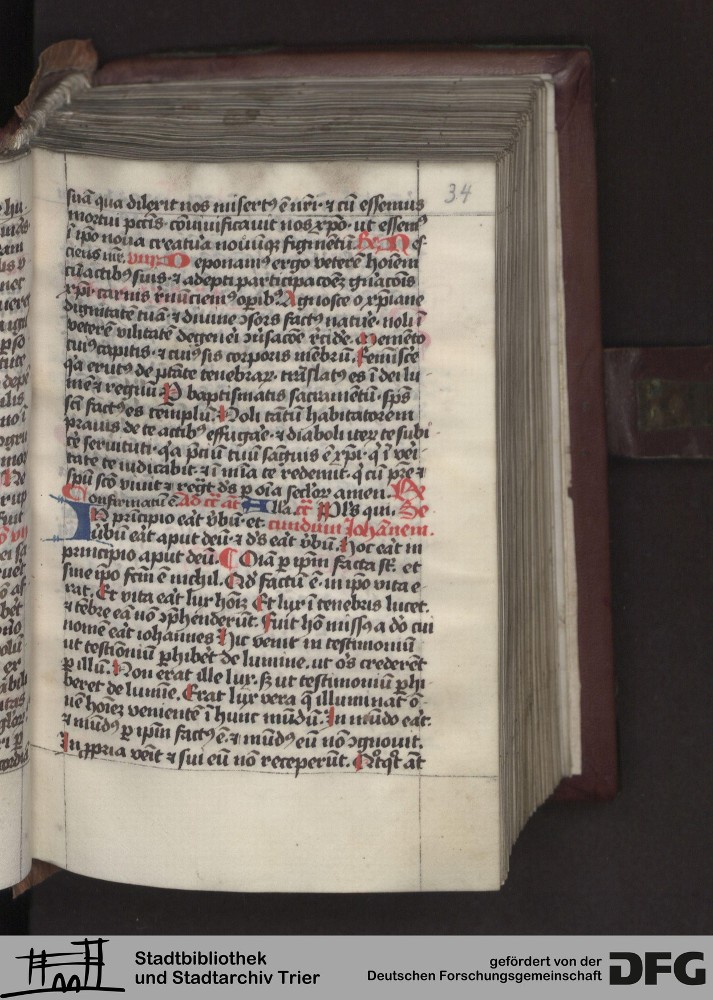 34
suā qua dilexit nos misertꝰ ē nr̄i · ⁊ cū essemus
mortui pctīs · cōuiuificauit nos xp̄o · ut essemꝰ
ī ip̄o noua creatura nouūqȝ figmētū. N ef
ciens
viij D eponamꝰ ergo veterē hoīem
cū actibꝰ suis · ⁊ adepti participacōeȝ gn̄acōis
xp̄i · carnis r̄nūciemꝰ opibꝰ. Agnosce o xp̄iane
dignitatē tuā · ⁊ diuine ꝯsors factꝰ nature · noli ī
veterē vilitatē degeneri ꝯūsacōe r̄cide. Memēto
cuiꝰ capitis · ⁊ cuiꝰ sis corporis mēbrū. Remisce
qa erutꝰ de ptāte tenebraꝝ · trāslatꝰ es ī dei lu
mē ⁊ regnū. P baptismatis sacramētū · sp̄s
scī factꝰ es templū. Noli tātū habitatorem
prauis de te actibꝰ effugare · ⁊ diaboli iteꝝ te subi
ce seruituti · qa p̄ciū tuū sanguis ē xp̄i · qͥ ī veri
tate te iudicabit · ⁊ ī mīa te redemit · qͥ cū pr̄e ⁊
spū sc̄o viuit ⁊ regt̄ ds̄ ꝑ oīa sc̄loꝝ amen. R
Confirmatū ē. Ad t̄c̄ āt Alla. t̄c̄ Ps̄ qui. Se
IN principio erāt v̄bū · et cundum Iohānem.
v̄bū eāt aput deū · ⁊ ds̄ eāt v̄bū. Hoc eāt in
principio aput deū. Oīa ꝑ ip̄m facta st̄ · et
sine ip̄o fcm̄ ē nichil. Qd̓ factū ē · in ip̄o vita e
rat. Et vita eāt lux hoīȝ. Et lux ī tenebris lucet.
⁊ tēbre eā nō ꝯphenderūt. Fuit hō missꝰ a dō cui
nomē eāt iohannes. Hic venit in testimoniū
ut testīoniū ꝑhibēt de lumine. ut oēs crederēt
ꝑ illū. Non erat ille lux · sȝ ut testimoniū ꝑhi
beret de lumīe. Erat lux vera q̄ illuminat ō
nē hoīeȝ venientē ī hunc mūdū. In mūdo eāt.
⁊ mūdꝰ ꝑ ip̄m factꝰ ē · ⁊ mūdꝰ eū nō ꝯgnouit.
In ꝓpria venit ⁊ sui eū nō receperūt. Qͦtqt̄ āt
Stadtbibliothek
und Stadtarchiv Trier
gefördert von der
Deutschen Forschungsgemeinschaft
DFG